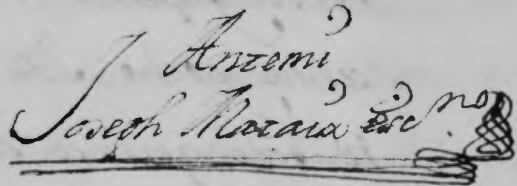 Antemi
Joseph Mataia Esc.no